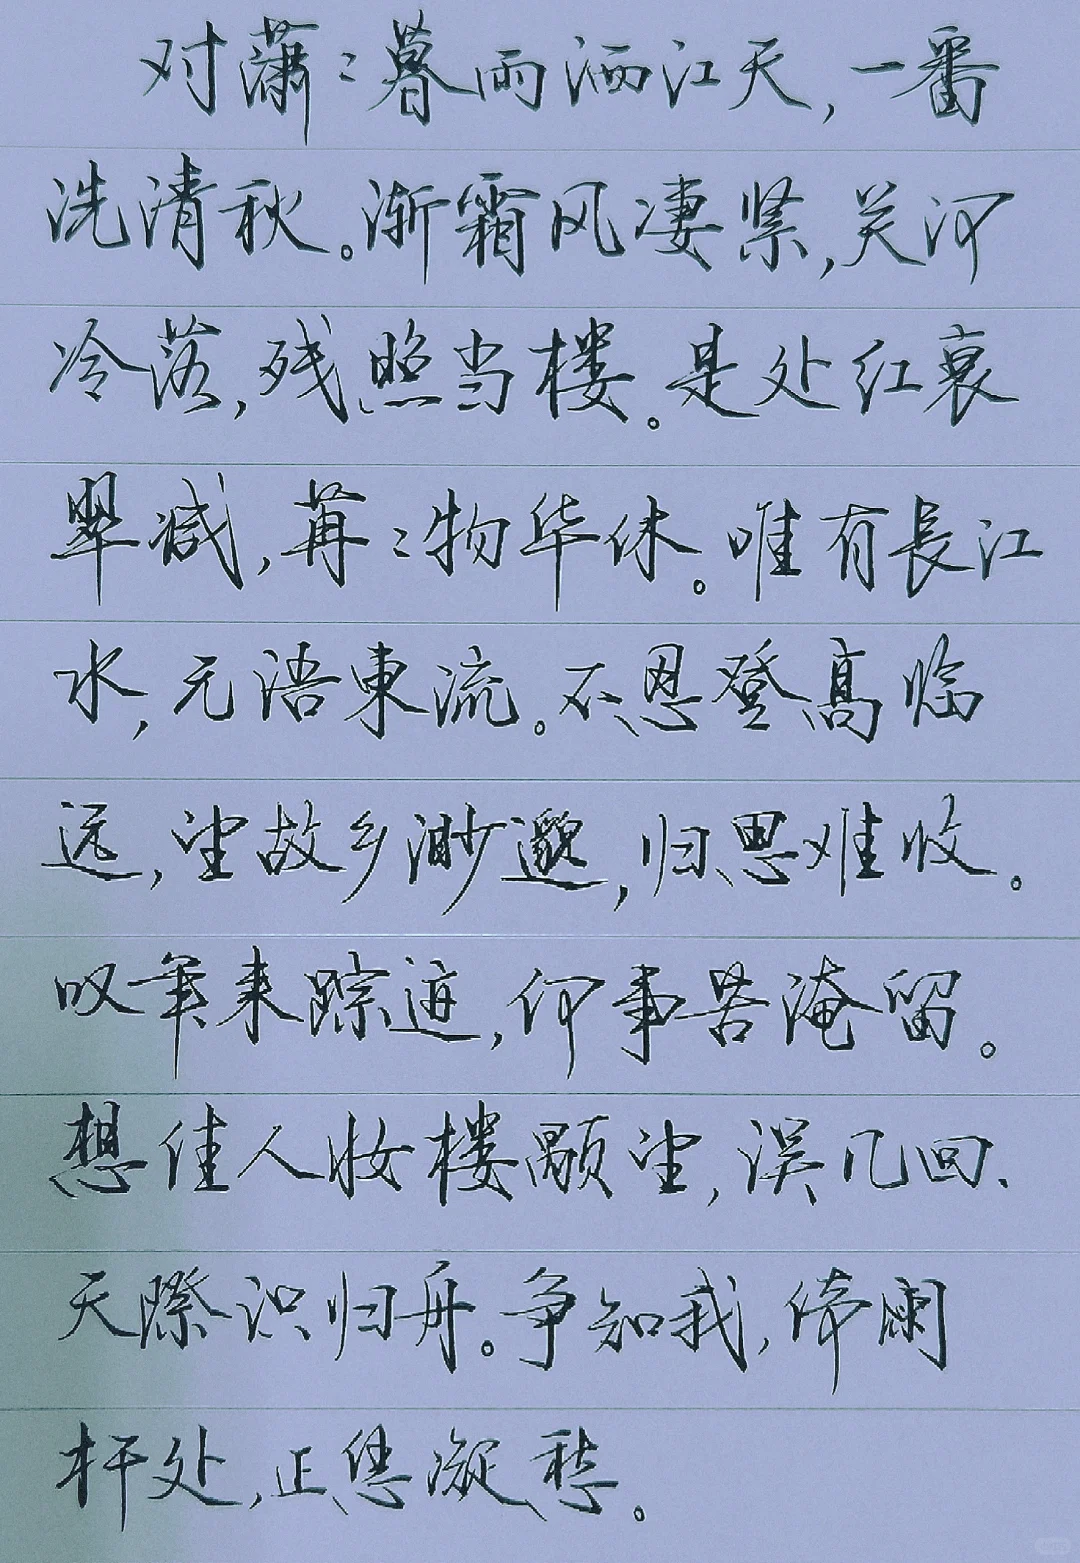 对潇〻暮雨洒江天，一番
洗清秋。渐霜风凄紧，关河
冷落，残照当楼。是处红衰
翠减，苒〻物华休。唯有長江
水，无语東流。不忍登高临
远，望故乡渺邈，归思难收。
叹年来踪迹，何事苦淹留。
想佳人妆楼颙望，误几回、
天際识归舟。争知我，倚阑
杆处，正恁凝愁。